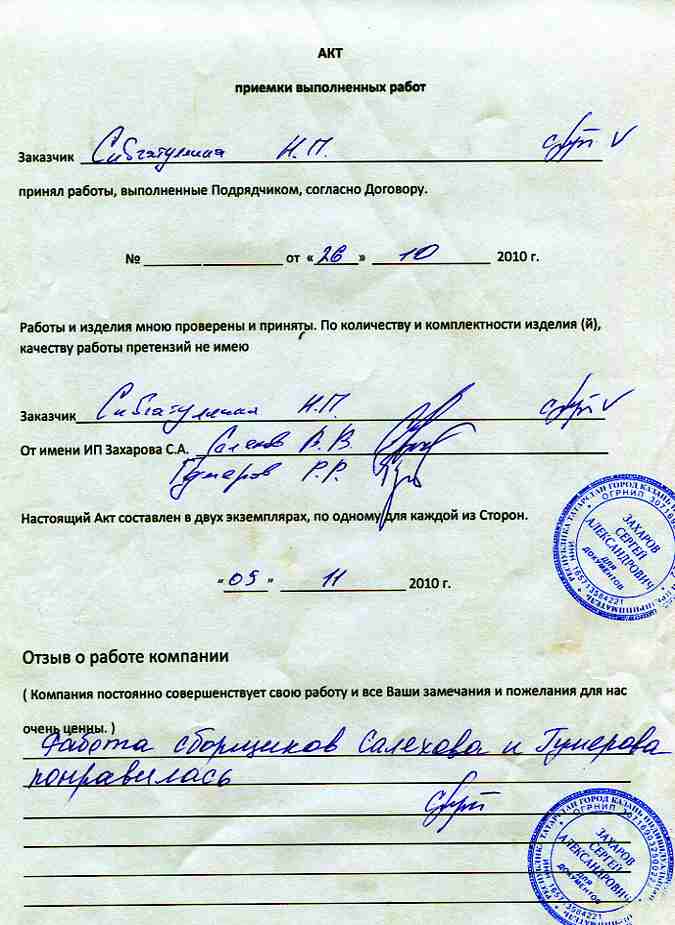 АКТ
приемки выполненных работ
Заказчик Сибгатуллина Н.П.
принял работы, выполненные Подрядчиком, согласно Договору.
№ ________ _________ от «26» 10 2010 г.
Работы и изделия мною проверены и приняты. По количеству и комплектности изделия (й),
качеству работы претензий не имею
Заказчик Сибгатуллина Н.П.
От имени ИП Захарова С.А. Салехов В.В.
Гумеров Р.Р.
Настоящий Акт составлен в двух экземплярах, по одному для каждой из Сторон.
«05» 11 2010 г.
РЕСПУБЛИКА ТАТАРСТАН ГОРОД КАЗАНЬ
ОГРНИП
ЗАХАРОВ
СЕРГЕЙ
АЛЕКСАНДРОВИЧ
ДЛЯ
ДОКУМЕНТОВ
ИНН 165713584221
Отзыв о работе компании
( Компания постоянно совершенствует свою работу и все Ваши замечания и пожелания для нас
очень ценны. )
Работа сборщиков Салехова и Гумерова
понравилась
РЕСПУБЛИКА ТАТАРСТАН ГОРОД КАЗАНЬ ИНДИВИДУАЛЬНЫЙ
ОГРНИП
ЗАХАРОВ
СЕРГЕЙ
АЛЕКСАНДРОВИЧ
ДЛЯ
ДОКУМЕНТОВ
ИНН 165713584221